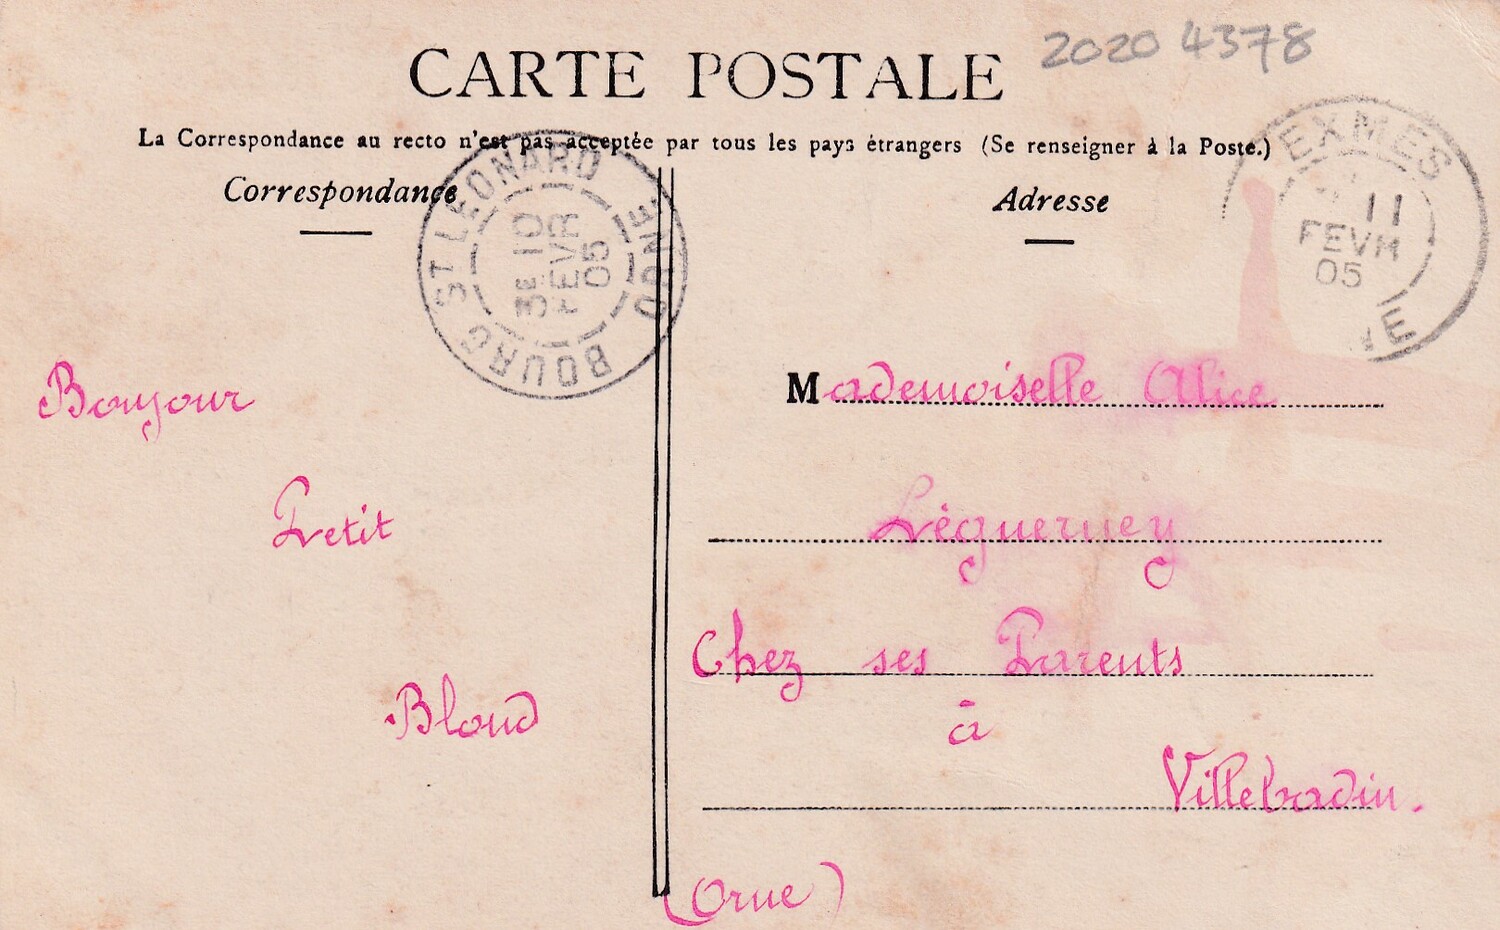 2020 4378
CARTE POSTALE
La Correspondance au recto n'est pas acceptée par tous les pays étrangers (Se renseigner à la Poste.)
Correspondance
Adresse
BOURG ST LEONARD
3E 10
FEVR
05
ORNE
EXMES
11
FEVR
05
NE
Bonjour
Petit
Blond
Mademoiselle Alice
Léguerney
Chez ses Parents
à
Villebadin.
(Orne)